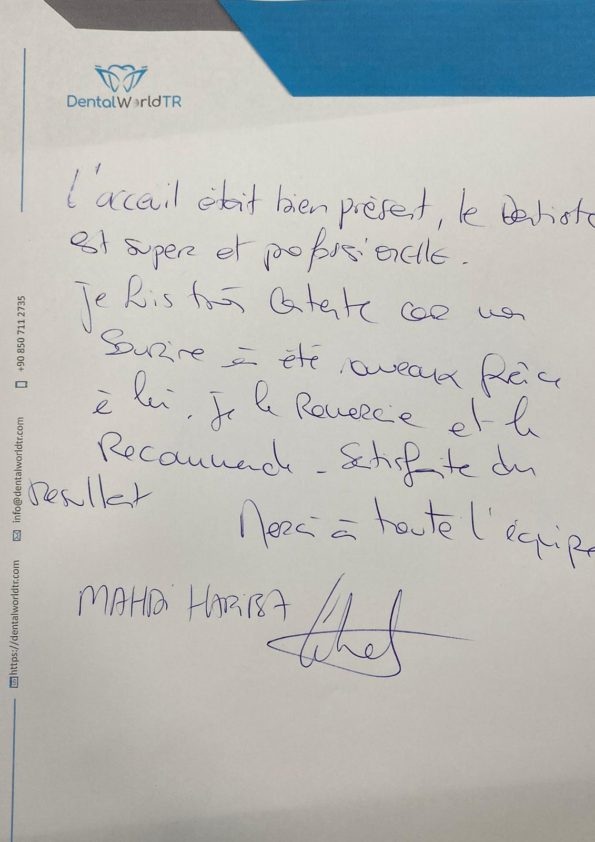 DentalWorldTR
L'acceuil était bien présent, le Dentiste
est super et professionelle.
Je suis très contente car mon
sourire à été nouveaux grâce
à lui. Je le Remercie et le
Recommande - Satisfaite du
resultat
Merci à toute l'équipe
MAHDI HARIBA
https://dentalworldtr.com
info@dentalworldtr.com
+90 850 711 2735